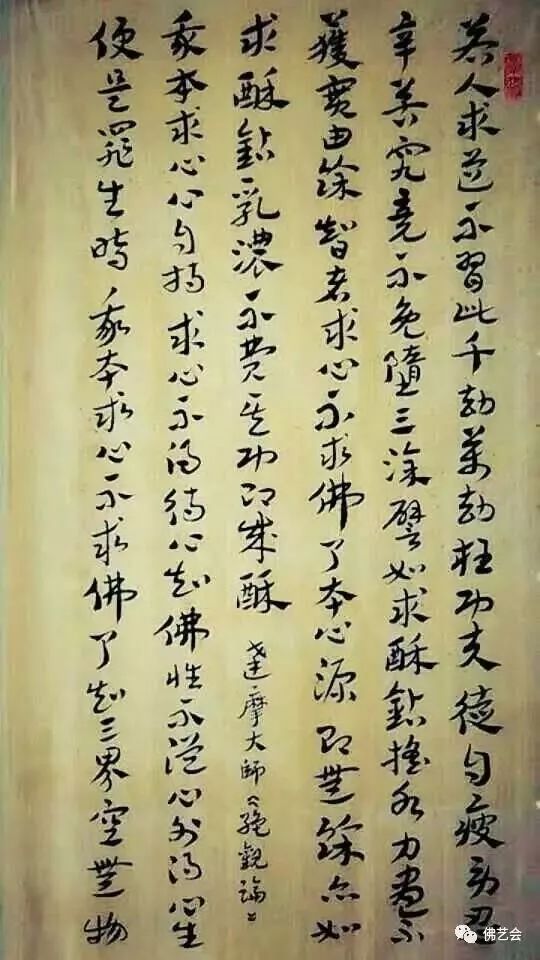 若人求道不習此千劫萬劫枉功夫徒自疲勞忍
辛苦究竟不免墮三塗譬如求酥鉆搖水力盡不
獲實由餘智者求心不求佛了本心源即無餘亦如
求酥鉆乳濃不費其功即成酥 達摩大師《絕觀論》
我本求心心自持求心不得待心知佛性不從心外得心生
便是罪生時 我本求心不求佛了知三界空無物
佛艺会